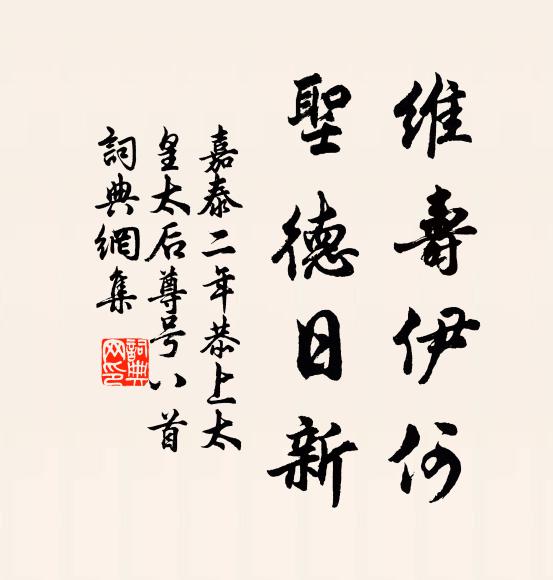 維壽伊何
聖德日新
嘉泰二年恭上太
皇太后尊号八首
詞典網集
詞典
网印